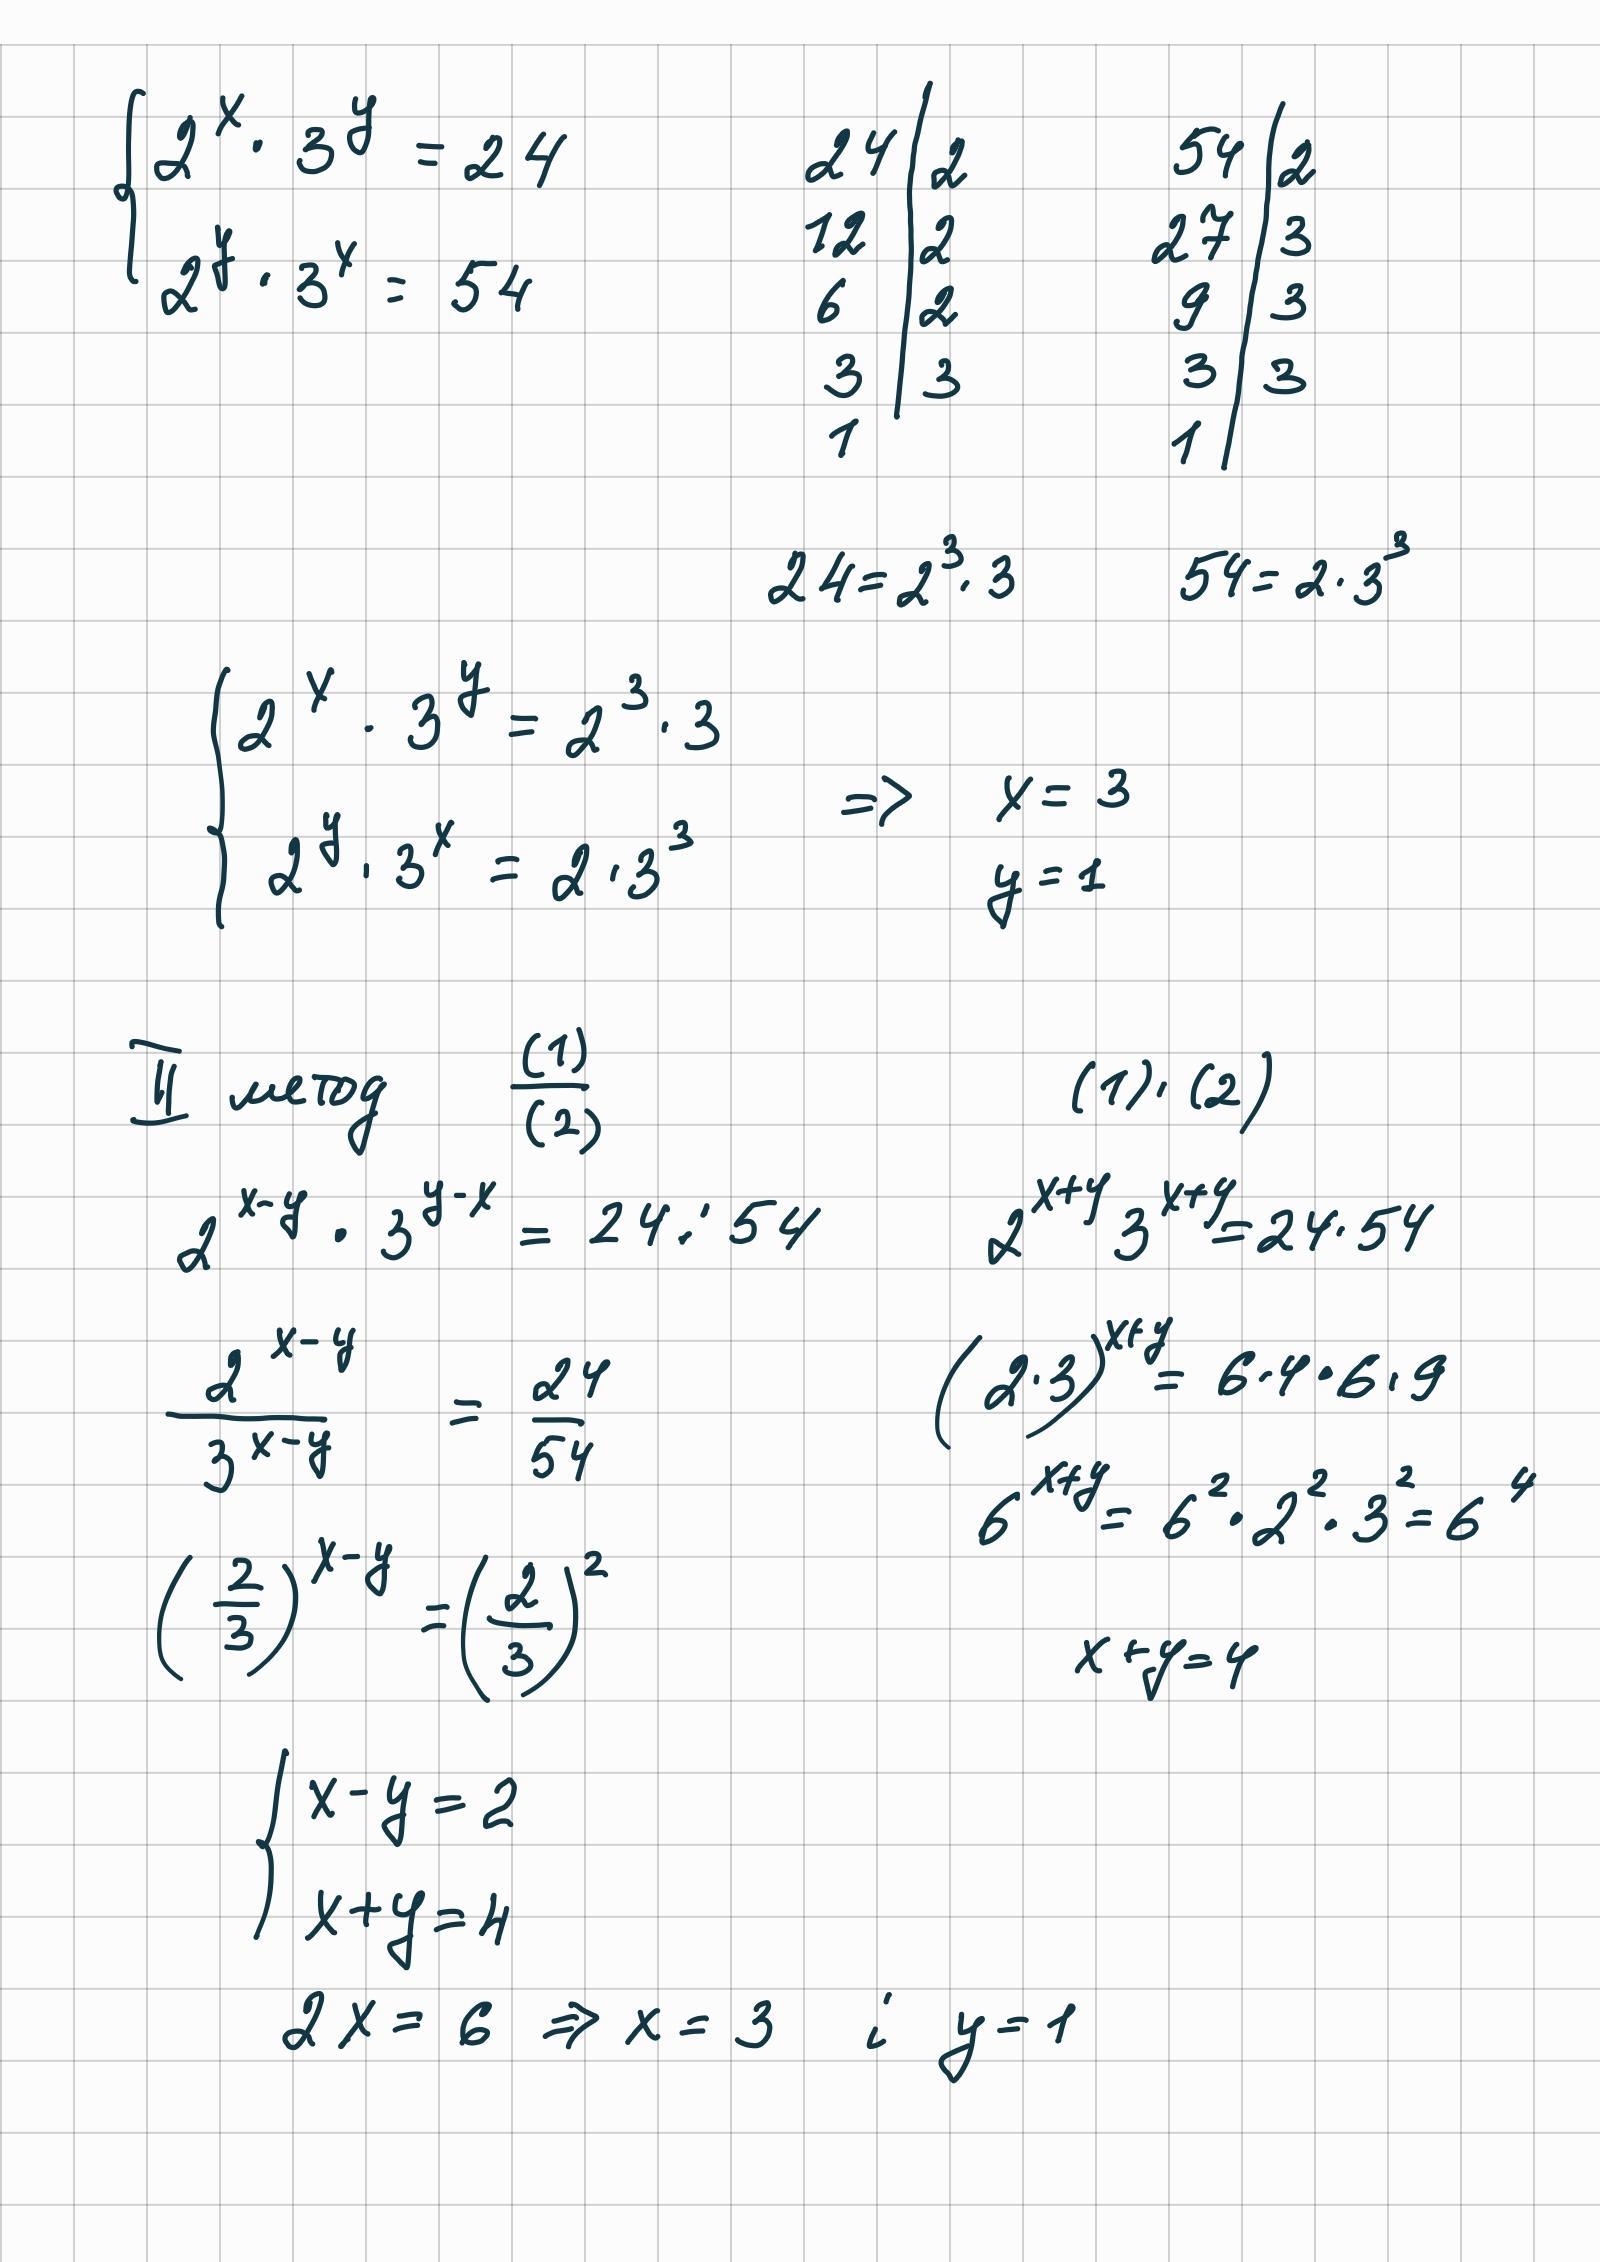 2^x · 3^y = 24
2^y · 3^x = 54
24 | 2
12 | 2
6 | 2
3 | 3
1
54 | 2
27 | 3
9 | 3
3 | 3
1
24 = 2^3 · 3
54 = 2 · 3^3
2^x · 3^y = 2^3 · 3
2^y · 3^x = 2 · 3^3
=> x = 3
y = 1
II метод
(1)/(2)
2^(x-y) · 3^(y-x) = 24 : 54
2^(x-y) / 3^(x-y) = 24/54
(2/3)^(x-y) = (2/3)^2
(1) · (2)
2^(x+y) 3^(x+y) = 24 · 54
(2·3)^(x+y) = 6·4·6·9
6^(x+y) = 6^2 · 2^2 · 3^2 = 6^4
x + y = 4
x - y = 2
x + y = 4
2x = 6 => x = 3 і y = 1